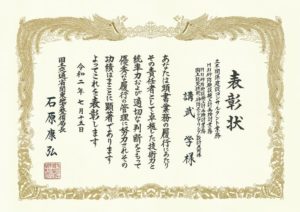 表彰状
講武 学 様
あなたは頭書業務の履行にあたり
その責任者として卓越した技術力と
統率力および適切な判断をもって
優秀な履行の管理に努力されその
功績はまことに顕著であります
よってこれを表彰します
令和二年七月十五日
国土交通省関東地方整備局長
石原康弘